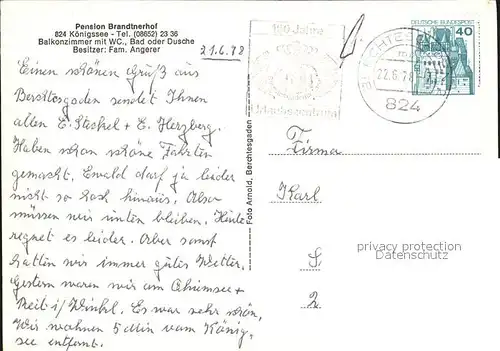 Pension Brandtnerhof
824 Königssee - Tel. (08652) 23 36
Balkonzimmer mit WC., Bad oder Dusche
Besitzer: Fam. Angerer
21.6.78
Einen schönen Gruß aus
Berchtesgaden sendet Ihnen
allen E. Steckel + E. Herzberg.
Haben schon schöne Fahrten
gemacht. Ewald darf ja leider
nicht so hoch hinaus. Also
müssen wir unten bleiben. Heute
regnet es leider. Aber sonst
hatten wir immer gutes Wetter.
Gestern waren wir am Chiemsee +
Reit i/ Winkl. Es war sehr schön.
Wir wohnen 5 Min vom König-
see entfernt.
Foto Arnold, Berchtesgaden
Jahre
22.6.78
824
DEUTSCHE BUNDESPOST
40
Firma
Karl
S
2
privacy protection
Datenschutz